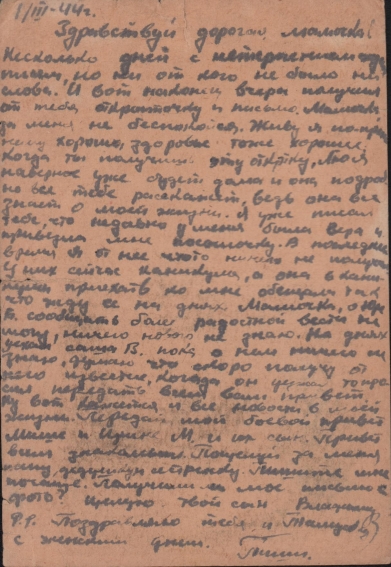 1/III-44г.
Здравствуй дорогая Мамочка!
Несколько дней с нетерпением жду
писем, но ни от кого не было ни
слова. И вот наконец вчера получил
от тебя открыточку и письмо. Мамочка
за меня не беспокойся. Живу я по-преж
нему хорошо, здоровье тоже хорошее.
Когда ты получишь эту открытку, Люся
наверное уже будет дома и она подроб
но все тебе расскажет, ведь она все
знает о моей жизни. Я уже писал
тебе, что недавно у меня была Вера и
привезла мне посылочку. В последнее
время я от нее что-то ничего не получаю
У них сейчас каникулы, а она в кани
кулы приехать ко мне обещала так
что жду ее на днях. Мамочка, о
сообщить более радостной вести не
могу, ничего нового не знаю. На днях
уехал Саша В. пока о нем ничего не
знаю, думаю что скоро получу от
него известие, когда он уезжал то про
сил передать всем вам привет.
Ну вот кажется и все новости в моей
жизни. Передай мой боевой привет
Мише и М. и их сын. Привет
всем знакомым. Поцелуй за меня
дедушку и Пишите мне
почаще. Получили ли мое письмо и
фото? Целую твой сын
P.P. Поздравляю тебя и Тамару
с женским днем.